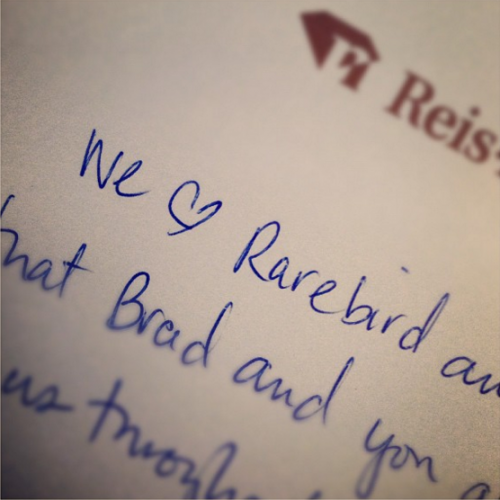 Reis
We ♡ Rarebird
that Brad and you
us through